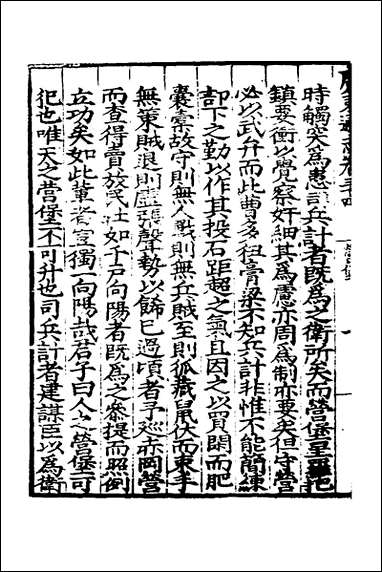 時觸突為患議兵計者既為之衛所矣而營堡星羅把
鎮要衝以覺察奸細其為慮亦周為制亦要矣但守營
必以武弁而此曹多稚膏粱不知兵計非惟不能簡練
部下之勤以作其投石距超之氣且因之以買閑而肥
囊橐故守則無人戰則無兵賊至則狐藏鼠伏而束手
無策賊退則虛張聲勢以餙已過頃者予巡亦岡營
而查得賣放民壯如千戸向陽者既為之參提而照例
立功矣如此輩者豈獨一向陽哉君子曰人之營堡可
犯也唯天之營堡不可升也司兵計者建謀臣以為衛